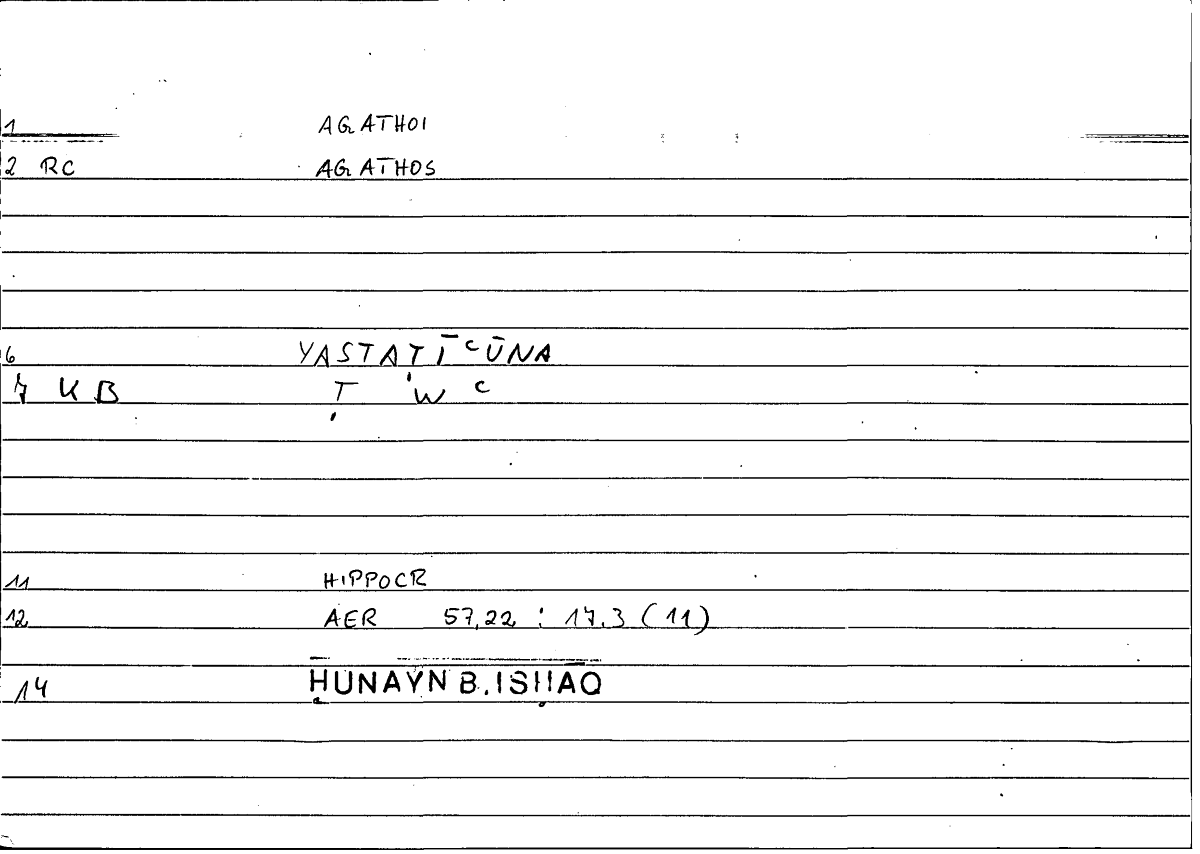 1 AGATHOI
2 RC AGATHOS
6 YASTATĪʿŪNA
7 KB Ṭ W ʿ
11 HIPPOCR
12 AER 57,22 : 17.3 (11)
14 ḤUNAYN B. ISḤĀQ